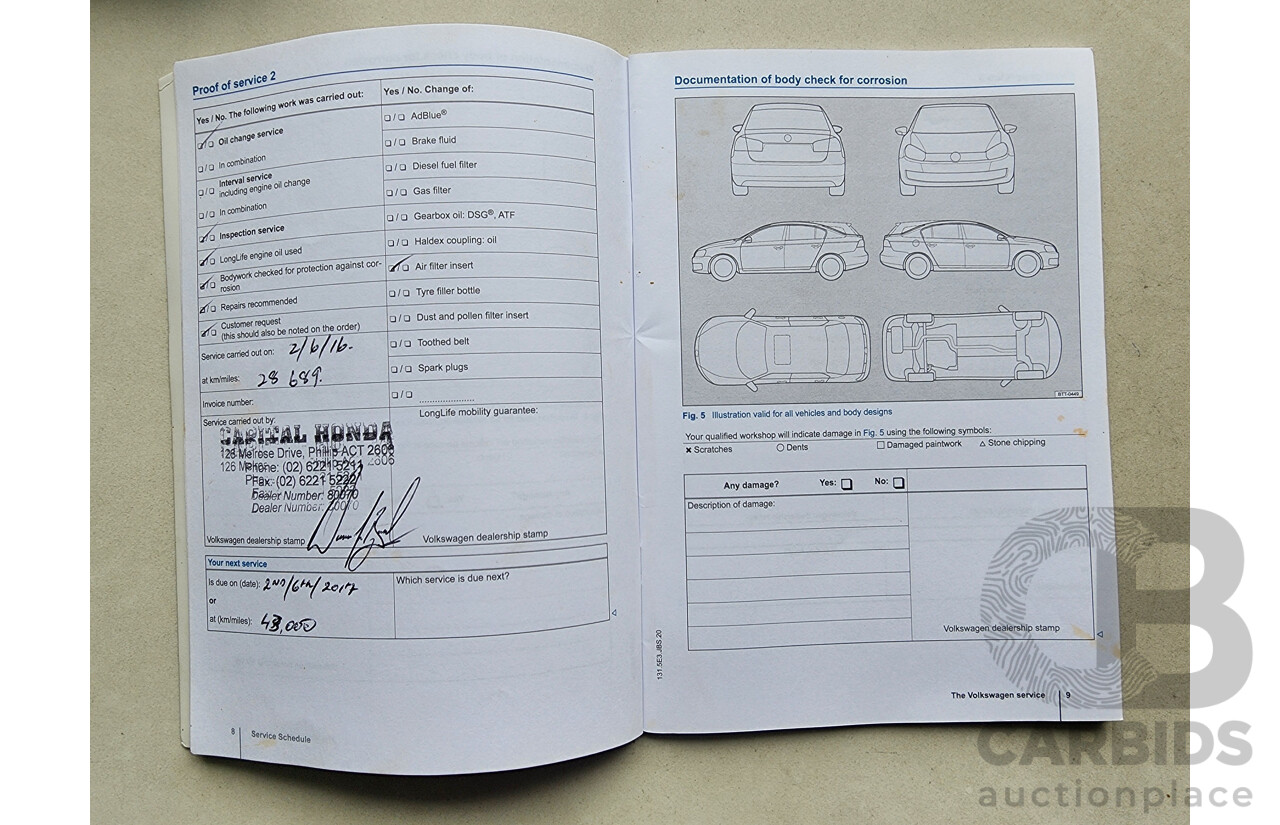 Proof of service 2
Yes / No. The following work was carried out:
☑/❏ Oil change service
❏/❏ In combination
❏/❏ Interval service
including engine oil change
❏/❏ In combination
☑/❏ Inspection service
☑/❏ LongLife engine oil used
☑/❏ Bodywork checked for protection against cor-
rosion
☑/❏ Repairs recommended
☑/❏ Customer request
(this should also be noted on the order)
Service carried out on: 2/6/16.
at km/miles: 28 689.
Invoice number:
Service carried out by:
CAPITAL HONDA
126 Melrose Drive, Phillip ACT 2606
Phone: (02) 6221 5211
Fax: (02) 6221 5222
Dealer Number: 80070
Dealer Number:
Volkswagen dealership stamp
Yes / No. Change of:
❏/❏ AdBlue®
❏/❏ Brake fluid
❏/❏ Diesel fuel filter
❏/❏ Gas filter
❏/❏ Gearbox oil: DSG®, ATF
❏/❏ Haldex coupling: oil
☑/❏ Air filter insert
❏/❏ Tyre filler bottle
❏/❏ Dust and pollen filter insert
❏/❏ Toothed belt
❏/❏ Spark plugs
❏/❏ ......................
LongLife mobility guarantee:
Volkswagen dealership stamp
Your next service
Is due on (date): 2ND/6TH/2017
or
at (km/miles): 43,000
Which service is due next?
8 Service Schedule
Documentation of body check for corrosion
BTT-0449
Fig. 5 Illustration valid for all vehicles and body designs
Your qualified workshop will indicate damage in Fig. 5 using the following symbols:
✕ Scratches ○ Dents □ Damaged paintwork △ Stone chipping
Any damage? Yes: ❏ No: ❏
Description of damage:
Volkswagen dealership stamp
131.5E3.JBS.20
The Volkswagen service 9
CB
CARBIDS
auctionplace